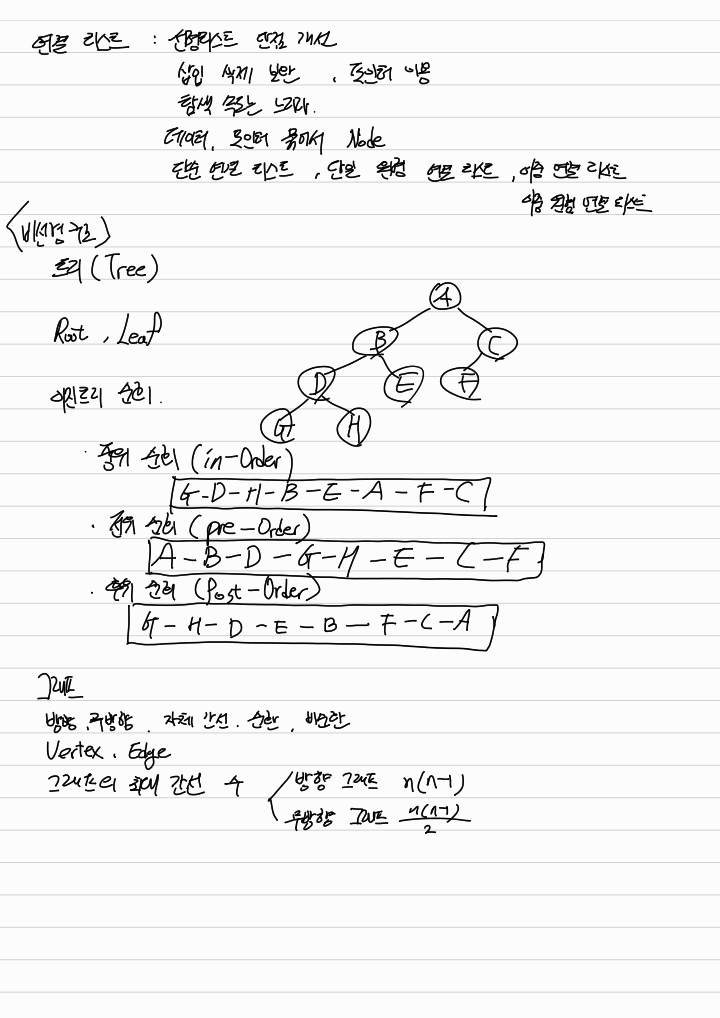 연결 리스트 : 선형리스트 단점 개선
삽입 삭제 보완 , 포인터 이용
탐색 속도는 느리다.
데이터, 포인터 묶어서 Node
단순 연결 리스트 , 단일 원형 연결 리스트 , 이중 연결 리스트
이중 원형 연결 리스트
<비선형 구조>
트리 (Tree)
A
Root , Leaf
B C
D E F
이진트리 순회.
G H
· 중위 순회 (in-Order)
G-D-H-B-E-A-F-C
· 전위 순회 (pre-Order)
A-B-D-G-H-E-C-F
· 후위 순회 (Post-Order)
G-H-D-E-B-F-C-A
그래프
방향, 무방향 , 자체 간선 . 순환 ,
Vertex , Edge
그래프의 최대 간선 수 방향 그래프 n(n-1)
무방향 그래프 n(n-1)/2